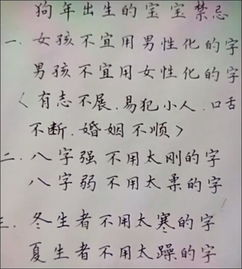 狗年出生的宝宝禁忌
一、女孩不宜用男性化的字
男孩不宜用女性化的字
〈有志不展.易犯小人.口舌
不断.婚姻不顺〉
二.八字强不用太刚的字
八字弱不用太柔的字
三.冬生者不用太寒的字
夏生者不用太躁的字